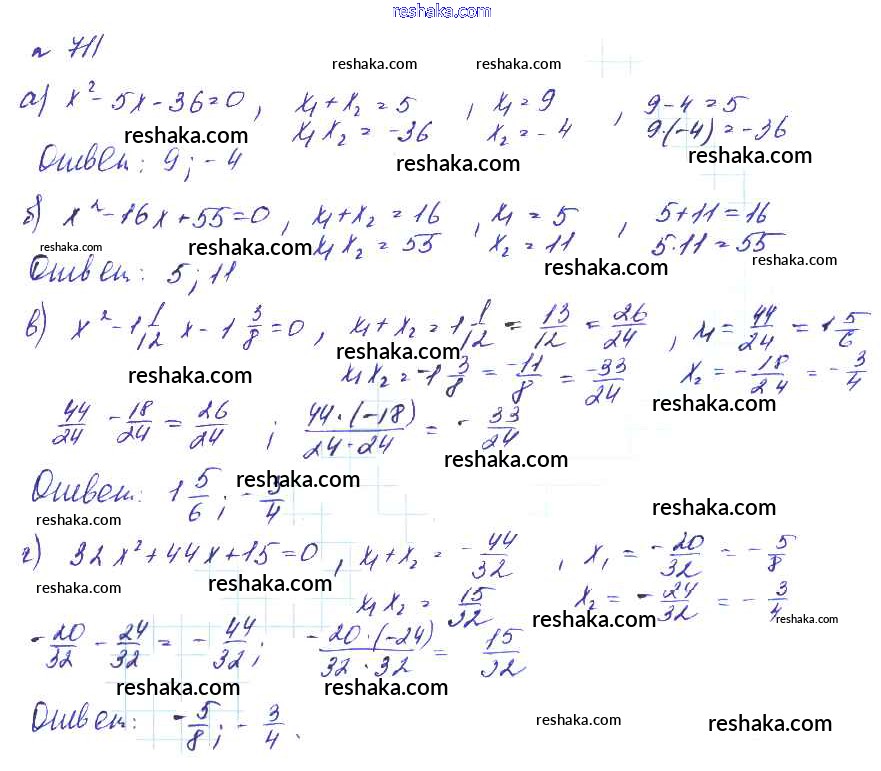 reshaka.com
№ 711
reshaka.com reshaka.com
а) x² - 5x - 36 = 0, x₁ + x₂ = 5, x₁ = 9, 9 - 4 = 5
reshaka.com x₁x₂ = -36 x₂ = -4 9·(-4) = -36
Ответ: 9; -4 reshaka.com reshaka.com
б) x² - 16x + 55 = 0, x₁ + x₂ = 16, x₁ = 5, 5 + 11 = 16
reshaka.com reshaka.com x₁x₂ = 55 x₂ = 11 5·11 = 55 reshaka.com
Ответ: 5; 11 reshaka.com
в) x² - 1 1/12 x - 1 3/8 = 0, x₁ + x₂ = 1 1/12 = 13/12 = 26/24, x₁ = 44/24 = 1 5/6
reshaka.com reshaka.com x₁x₂ = -1 3/8 = -11/8 = -33/24 x₂ = -18/24 = -3/4
reshaka.com
44/24 - 18/24 = 26/24; 44·(-18)/24·24 = -33/24
reshaka.com
Ответ: 1 5/6; -3/4 reshaka.com
reshaka.com reshaka.com
г) 32x² + 44x + 15 = 0, x₁ + x₂ = -44/32, x₁ = -20/32 = -5/8
reshaka.com reshaka.com x₁x₂ = 15/32 x₂ = -24/32 = -3/4
reshaka.com reshaka.com
-20/32 - 24/32 = -44/32; -20·(-24)/32·32 = 15/32
reshaka.com reshaka.com
Ответ: -5/8; -3/4.
reshaka.com reshaka.com